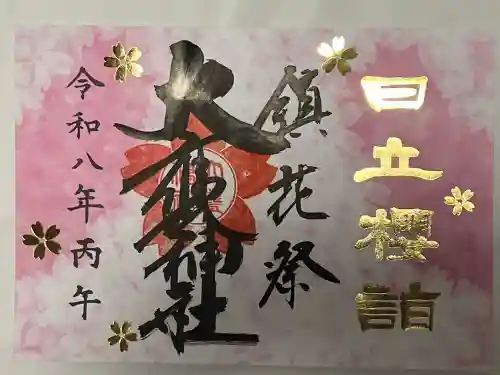 日立櫻詣
鎮花祭
大甕神社
令和八年丙午